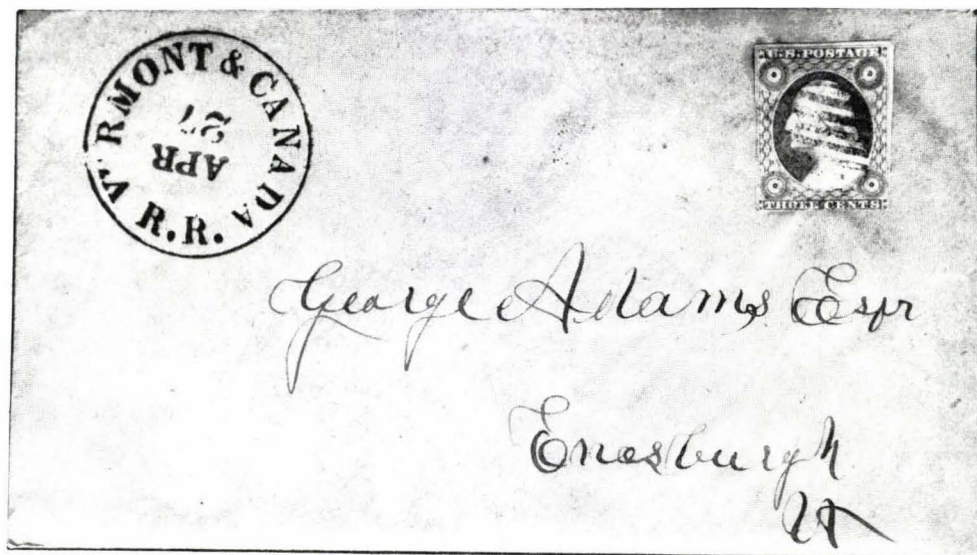 V. RMONT & CANADA
APR
R.R.
U.S. POSTAGE
THREE CENTS
George Adams Esqr
Enosburgh
Vt